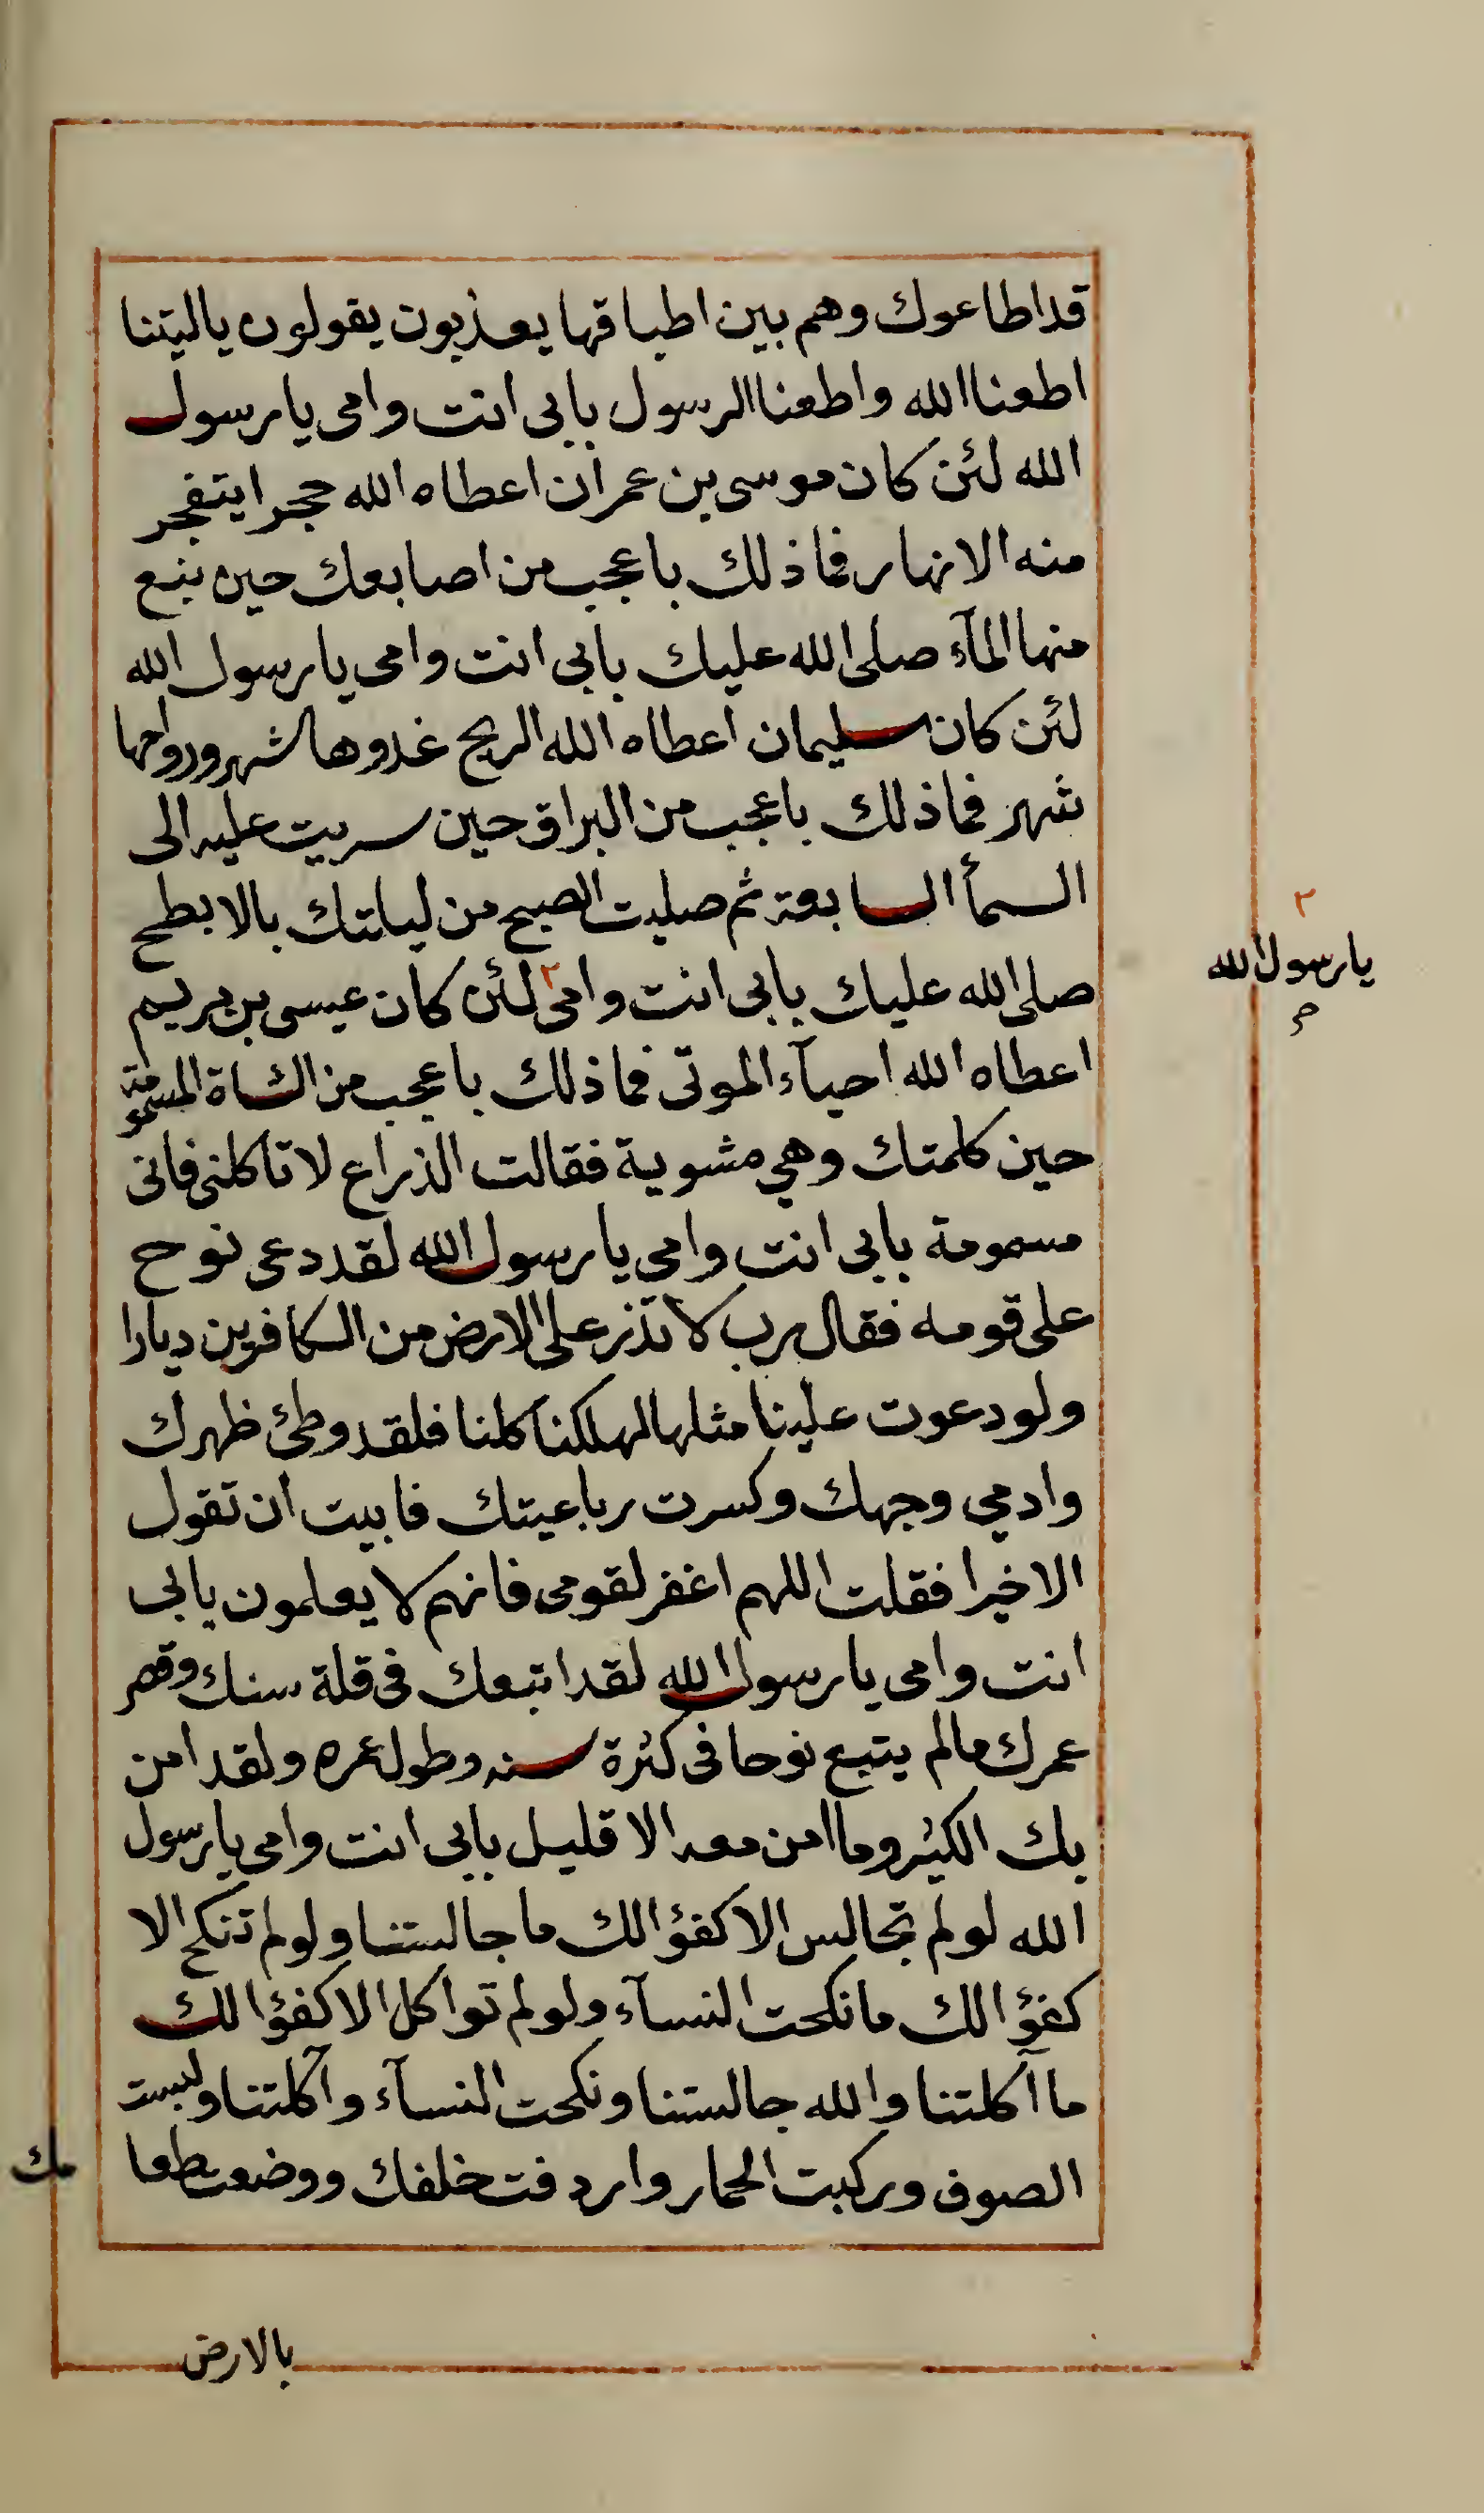 قد اطاعوك وهم بين اطباقها يعذبون يقولون ياليتنا
اطعنا الله واطعنا الرسول بابى انت وامى يا رسول
الله لئن كان موسى بن عمران اعطاه الله حجرا يتفجر
منه الانهار فما ذلك باعجب من اصابعك حين نبع
منها المآء صلى الله عليك بابى انت وامى يا رسول الله
لئن كان سليمان اعطاه الله الريح غدوها شهر ورواحها
شهر فما ذلك باعجب من البراق حين سريت عليه الى
السمأ السابعة ثم صليت الصبح من ليلتك بالابطح
صلى الله عليك بابى انت وامى ٢ لئن كان عيسى بن مريم
٢
يا رسول الله
صح
اعطاه الله احيآء الموتى فما ذلك باعجب من الشاة المسمومة
حين كلمتك وهي مشوية فقالت الذراع لا تاكلنى فانى
مسمومة بابى انت وامى يا رسول الله لقد دعى نوح
على قومه فقال رب لا تذر على الارض من الكافرين ديارا
ولو دعوت علينا مثلها لهلكنا كلنا فلقد وطئ ظهرك
وادمي وجهك وكسرت رباعيتك فابيت ان تقول
الا خيرا فقلت اللهم اغفر لقومى فانهم لا يعلمون بابى
انت وامى يا رسول الله لقد اتبعك فى قلة سنك وقصر
عمرك مالم يتبع نوحا فى كثرة سنه وطول عمره ولقد امن
بك الكثير وما امن معه الا قليل بابى انت وامى يا رسول
الله لو لم تجالس الا كفؤا لك ما جالستنا ولو لم تنكح الا
كفؤا لك ما نكحت النسآء ولو لم تواكل الا كفؤا لك
ما آكلتنا والله جالستنا ونكحت النسآء وآكلتنا ولبست
الصوف وركبت الحمار واردفت خلفك ووضعت طعا
مك
بالارض